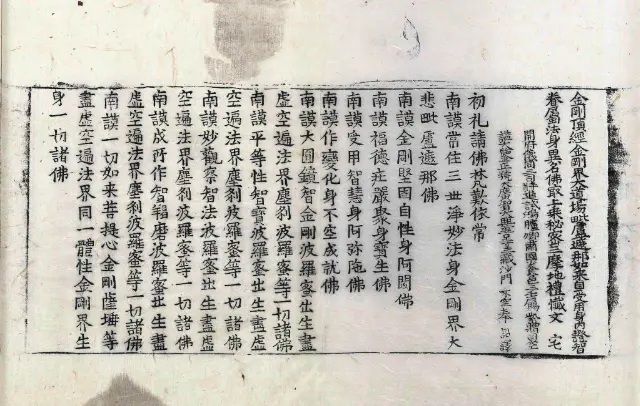 金剛頂經金剛界大道場毗盧遮那如來自受用身內證智
眷屬法身異名佛最上乘秘密三摩地禮懺文 宅
開府儀同三司特進試鴻臚卿肅國公食邑三千戶賜紫贈司空
諡大鑒正號大廣智大興善寺三藏沙門 不空奉 詔譯
初礼請佛梵歎依常
南謨常住三世淨妙法身金剛界大
悲毗盧遮那佛
南謨金剛堅固自性身阿閦佛
南謨福德庄嚴聚身寶生佛
南謨受用智慧身阿弥陁佛
南謨作變化身不空成就佛
南謨大圓鏡智金剛波羅蜜出生盡
虛空遍法界塵剎波羅蜜等一切諸佛
南謨平等性智寶波羅蜜出生盡虛
空遍法界塵剎波羅蜜等一切諸佛
南謨妙觀察智法波羅蜜出生盡虛
空遍法界塵剎波羅蜜等一切諸佛
南謨成所作智羯磨波羅蜜出生盡
虛空遍法界塵剎波羅蜜等一切諸佛
南謨一切如來菩提心金剛薩埵等
盡虛空遍法界同一體性金剛界生
身一切諸佛